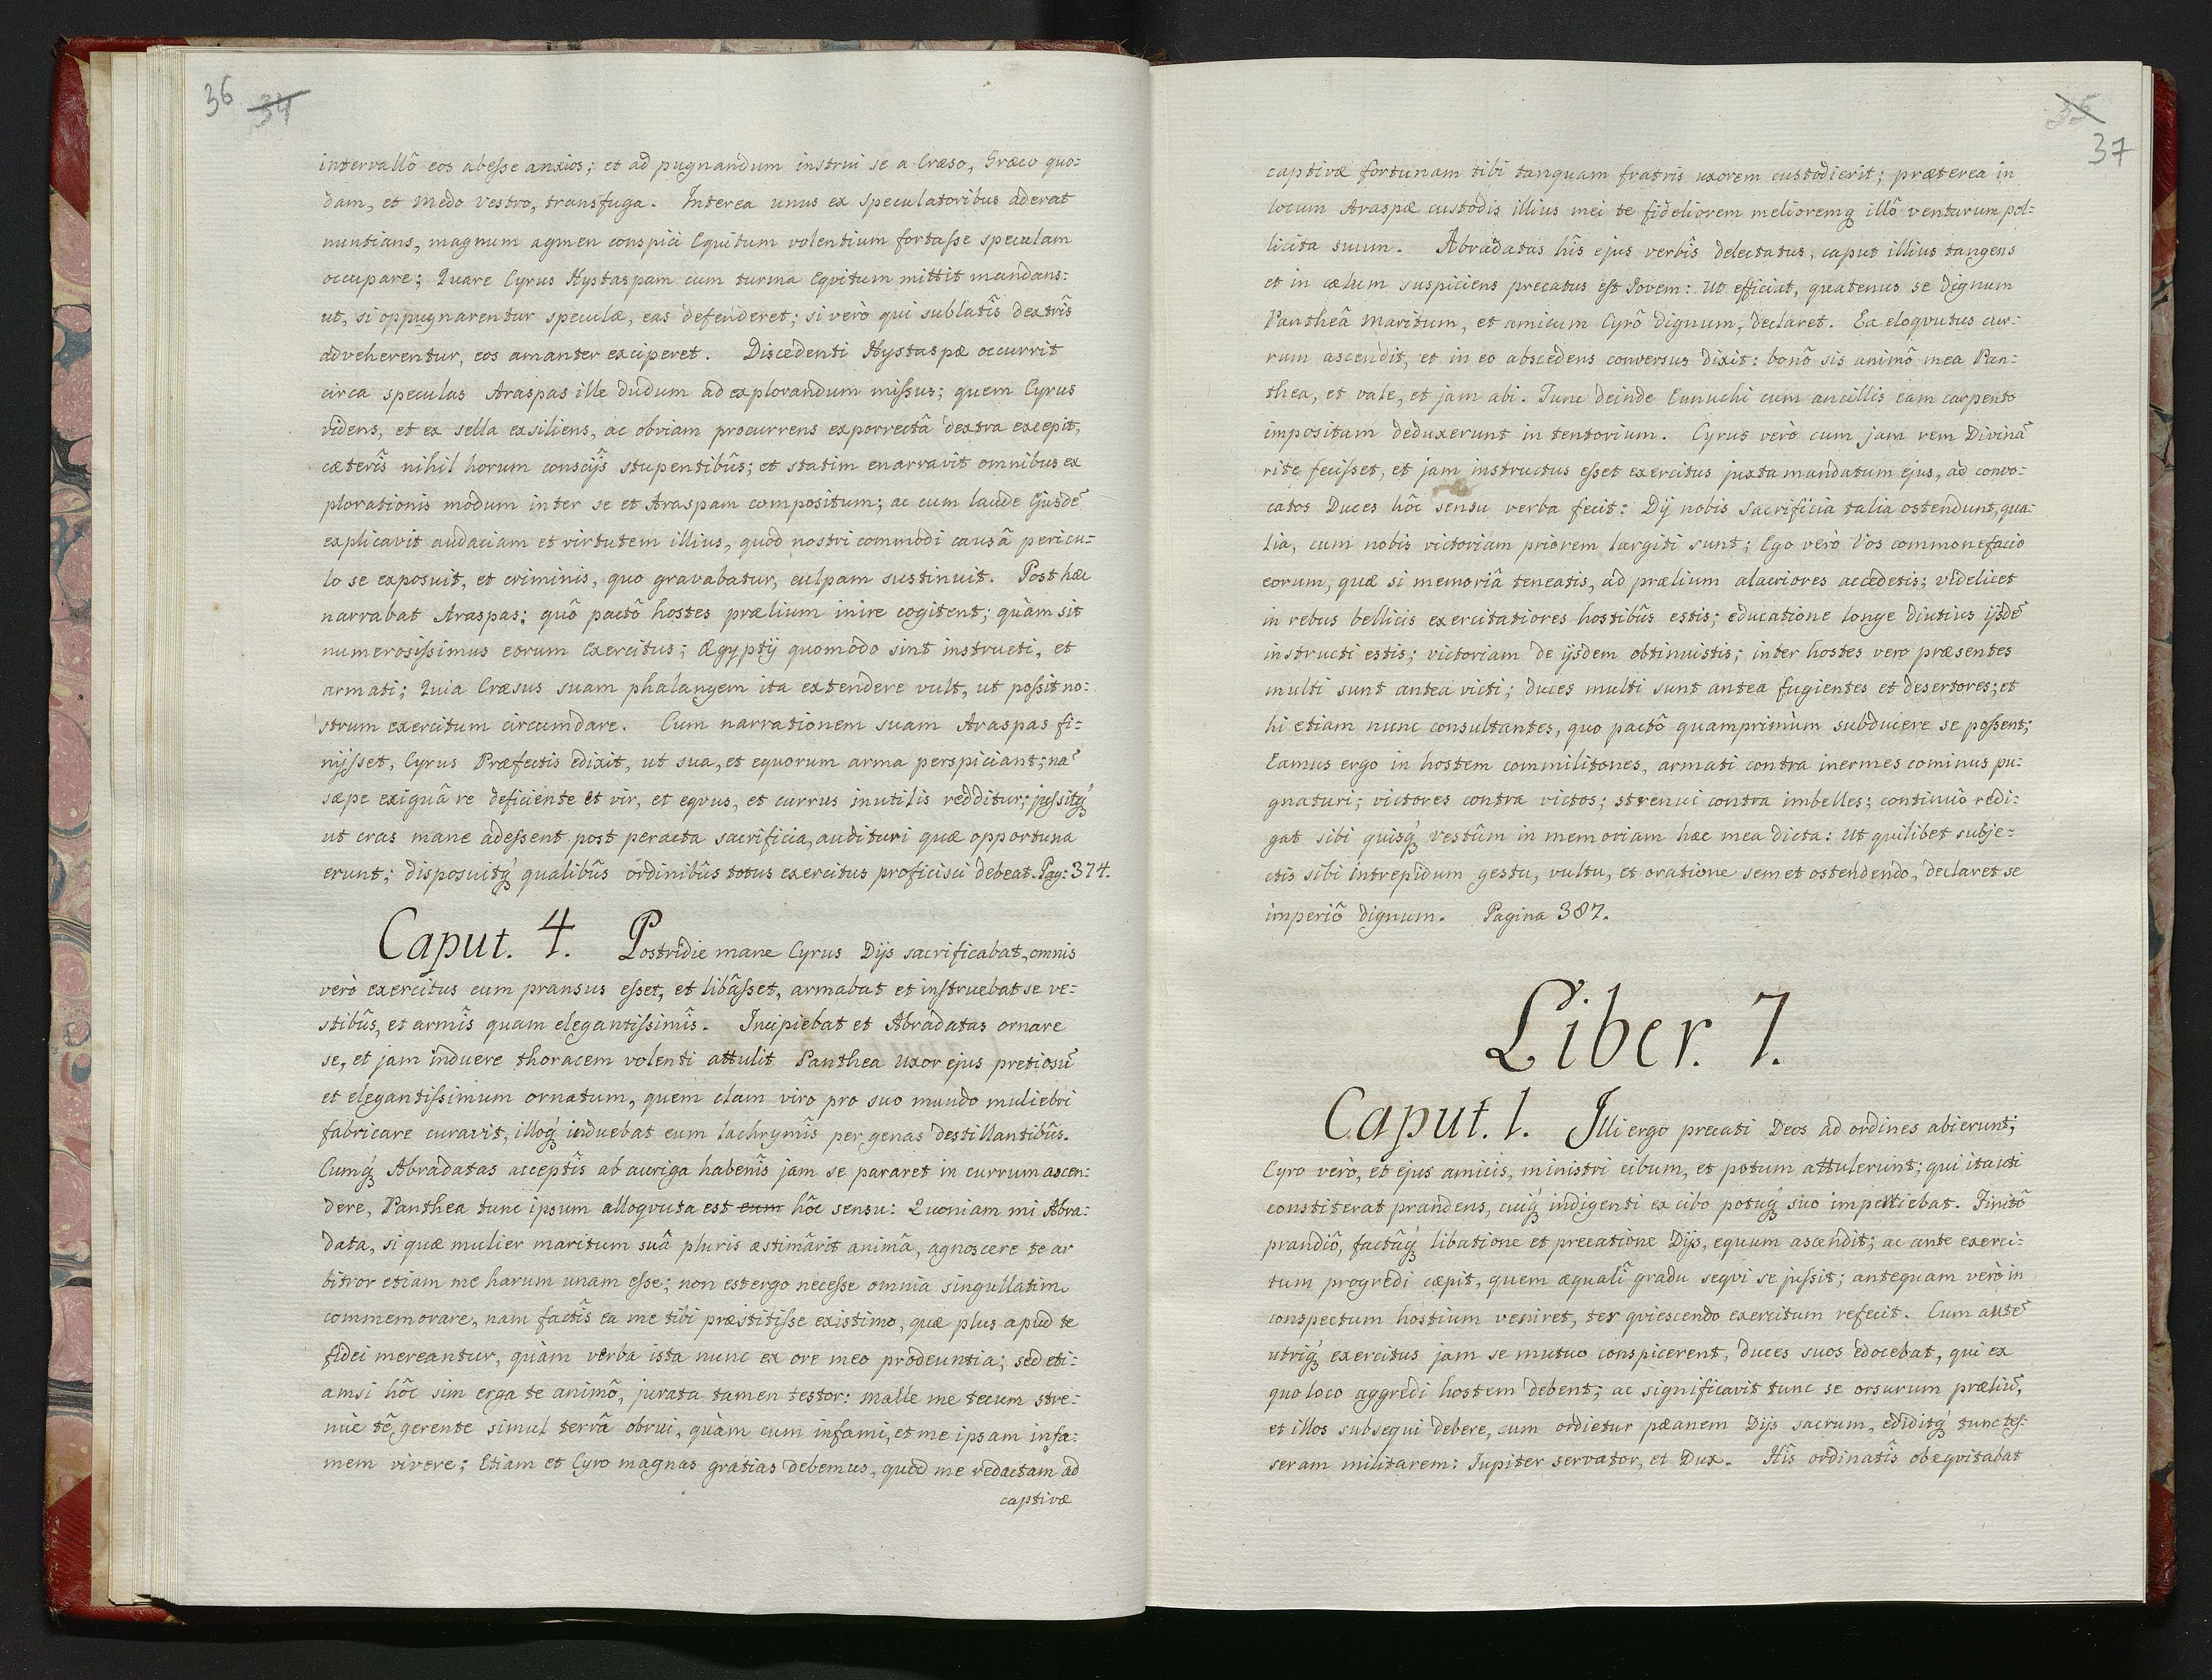 36 34
intervallô eos abesse anxios; et ad pugnandum instrui se a Cræso, Græco quo:
dam, et Medo vestro, transfuga. Interea unus ex speculatoribus aderat
nuntians, magnum agmen conspici Equitum volentium fortasse speculam
occupare; Quare Cyrus Hystaspam cum turma Eqvitum mittit mandans:
ut, si oppugnarentur speculæ, eas defenderet; si verò qui sublatîs dextrîs
adveherentur, eos amanter exciperet. Discedenti Hystaspæ occurrit
circa speculas Araspas ille dudum ad explorandum missus; quem Cyrus
videns, et ex sella exsiliens, ac obviam procurrens exporrectâ dextra excepit,
cæterîs nihil horum conscijs stupentibûs; et statim enarravit omnibus ex
plorationis modum inter se et Araspam compositum; ac cum laude Ejusdē
explicavit audaciam et virtutem illius, quòd nostri commodi causâ pericu-
lo se exposuit, et criminis, quo gravabatur, culpam sustinuit. Post hæc
narrabat Araspas: quô pactô hostes prælium inire cogitent; quàm sit
numerosissimus eorum Exercitus; Ægyptij quomodo sint instructi, et
armati; Quia Cræsus suam phalangem ita extendere vult, ut possit no:
strum exercitum circumdare. Cum narrationem suam Araspas fi-
nijsset, Cyrus Præfectis edixit, ut sua, et equorum arma perspiciant; nā
sæpe exiguâ re deficiente et vir, et eqvus, et currus inutilis redditur; jussitq́
ut cras mane adessent post peracta sacrificia, audituri quæ opportuna
erunt; disposuitq́ qualibûs ordinibûs totus exercitus proficisci debeat. Pag: 374.
Caput. 4. Postridie mane Cyrus Dijs sacrificabat, omnis
verò exercitus cum pransus esset, et libâsset, armabat et instruebat se ve-
stibûs, et armîs quam elegantissimîs. Incipiebat et Abradatas ornare
se, et jam induere thoracem volenti attulit Panthea Uxor ejus pretiosū
et elegantissimum ornatum, quem clam viro pro suo mundo muliebri
fabricare curavit, illoq́ induebat eum lachrymîs per genas destillantibûs.
Cumq́ Abradatas acceptîs ab auriga habenîs jam se pararet in currum ascen-
dere, Panthea tunc ipsum alloqvuta est eum hôc sensu: Quoniam mi Abra:
data, si quæ mulier maritum suâ pluris æstimârit animâ, agnoscere te ar
bitror etiam me harum unam esse; non est ergo necesse omnia singullatim
commemorare, nam factîs ea me tibi præstitisse existimo, quæ plus apud te
fidei mereantur, quàm verba ista nunc ex ore meo prodeuntia; sed eti-
amsi hôc sim erga te animô, jurata tamen testor: malle me tecum stre-
nuè tê gerente simul terrâ obrui, quàm cum infami, et me ipsam infa-
mem vivere; Etiam et Cyro magnas gratias debemus, quod me redactam ad
captivæ
35
37
captivæ fortunam tibi tanquam fratris uxorem custodierit; præterea in
locum Araspæ custodis illius mei te fideliorem melioremq́ illô venturum pol-
licita sum. Abradatas hîs ejus verbîs delectatus, caput illius tangens
et in cælum suspiciens precatus est Jovem: Ut efficiat, quatenus se dignum
Pantheâ maritum, et amicum Cyrô dignum, declaret. Ea eloqvutus cur-
rum ascendit, et in eo abscedens conversus dixit: bonô sis animô mea Pan-
thea, et vale, et jam abi. Tunc deinde Eunuchi cum ancillis eam carpento
impositam deduxerunt in tentorium. Cyrus verò cum jam rem Divinā
rite fecisset, et jam instructus esset exercitus juxta mandatum ejus, ad convo-
catos Duces hôc sensu verba fecit: Dij nobis Sacrificia talia ostendunt, qua-
lia, cum nobis victoriam priorem largiti sunt; Ego verò Vos commonefacio
eorum, quæ si memoriâ teneatis, ad prælium alacriores accedetis; videlicet
in rebus bellicis exercitatiores hostibûs estis; educatione longe diutius ijsdē
instructi estis; victoriam de ijsdem obtinuistis; inter hostes vero præsentes
multi sunt antea victi; duces multi sunt antea fugientes et desertores; et
hi etiam nunc consultantes, quo pactô quamprimùm subducere se possent;
Eamus ergo in hostem commilitones, armati contra inermes cominus pu-
gnaturi; victores contra victos; strenui contra imbelles; continuò redi-
gat sibi quisq́ vestûm in memoriam hæc mea dicta: Ut quilibet subje-
ctis sibi intrepidum gestu, vultu, et oratione semet ostendendo, declaret se
imperiô dignum. Pagina 387.
Liber. 7.
Caput. 1. Illi ergo precati Deos ad ordines abierunt;
Cyro verò, et ejus amicis, ministri cibum, et potum attulerunt; qui ita uti
constiterat prandens, cuiq́ indigenti ex cibo potuq́ suo impertiebat. Finitô
prandiô, factâq́ libatione et precatione Dijs, equum ascendit; ac ante exerci-
tum progredi cæpit, quem æquali gradu seqvi se jussit; antequam verò in
conspectum hostium veniret, ter qviescendo exercitum refecit. Cum autē
utriq́ exercitus jam se mutuo conspicerent, duces suos edocebat, qui ex
quo loco aggredi hostem debent; ac significavit tunc se orsurum præliū,
et illos subsequi debere, cum ordietur pæanem Dijs sacrum, ediditq́ tunc tes-
seram militarem: Jupiter servator, et Dux. Hîs ordinatîs obeqvitabat